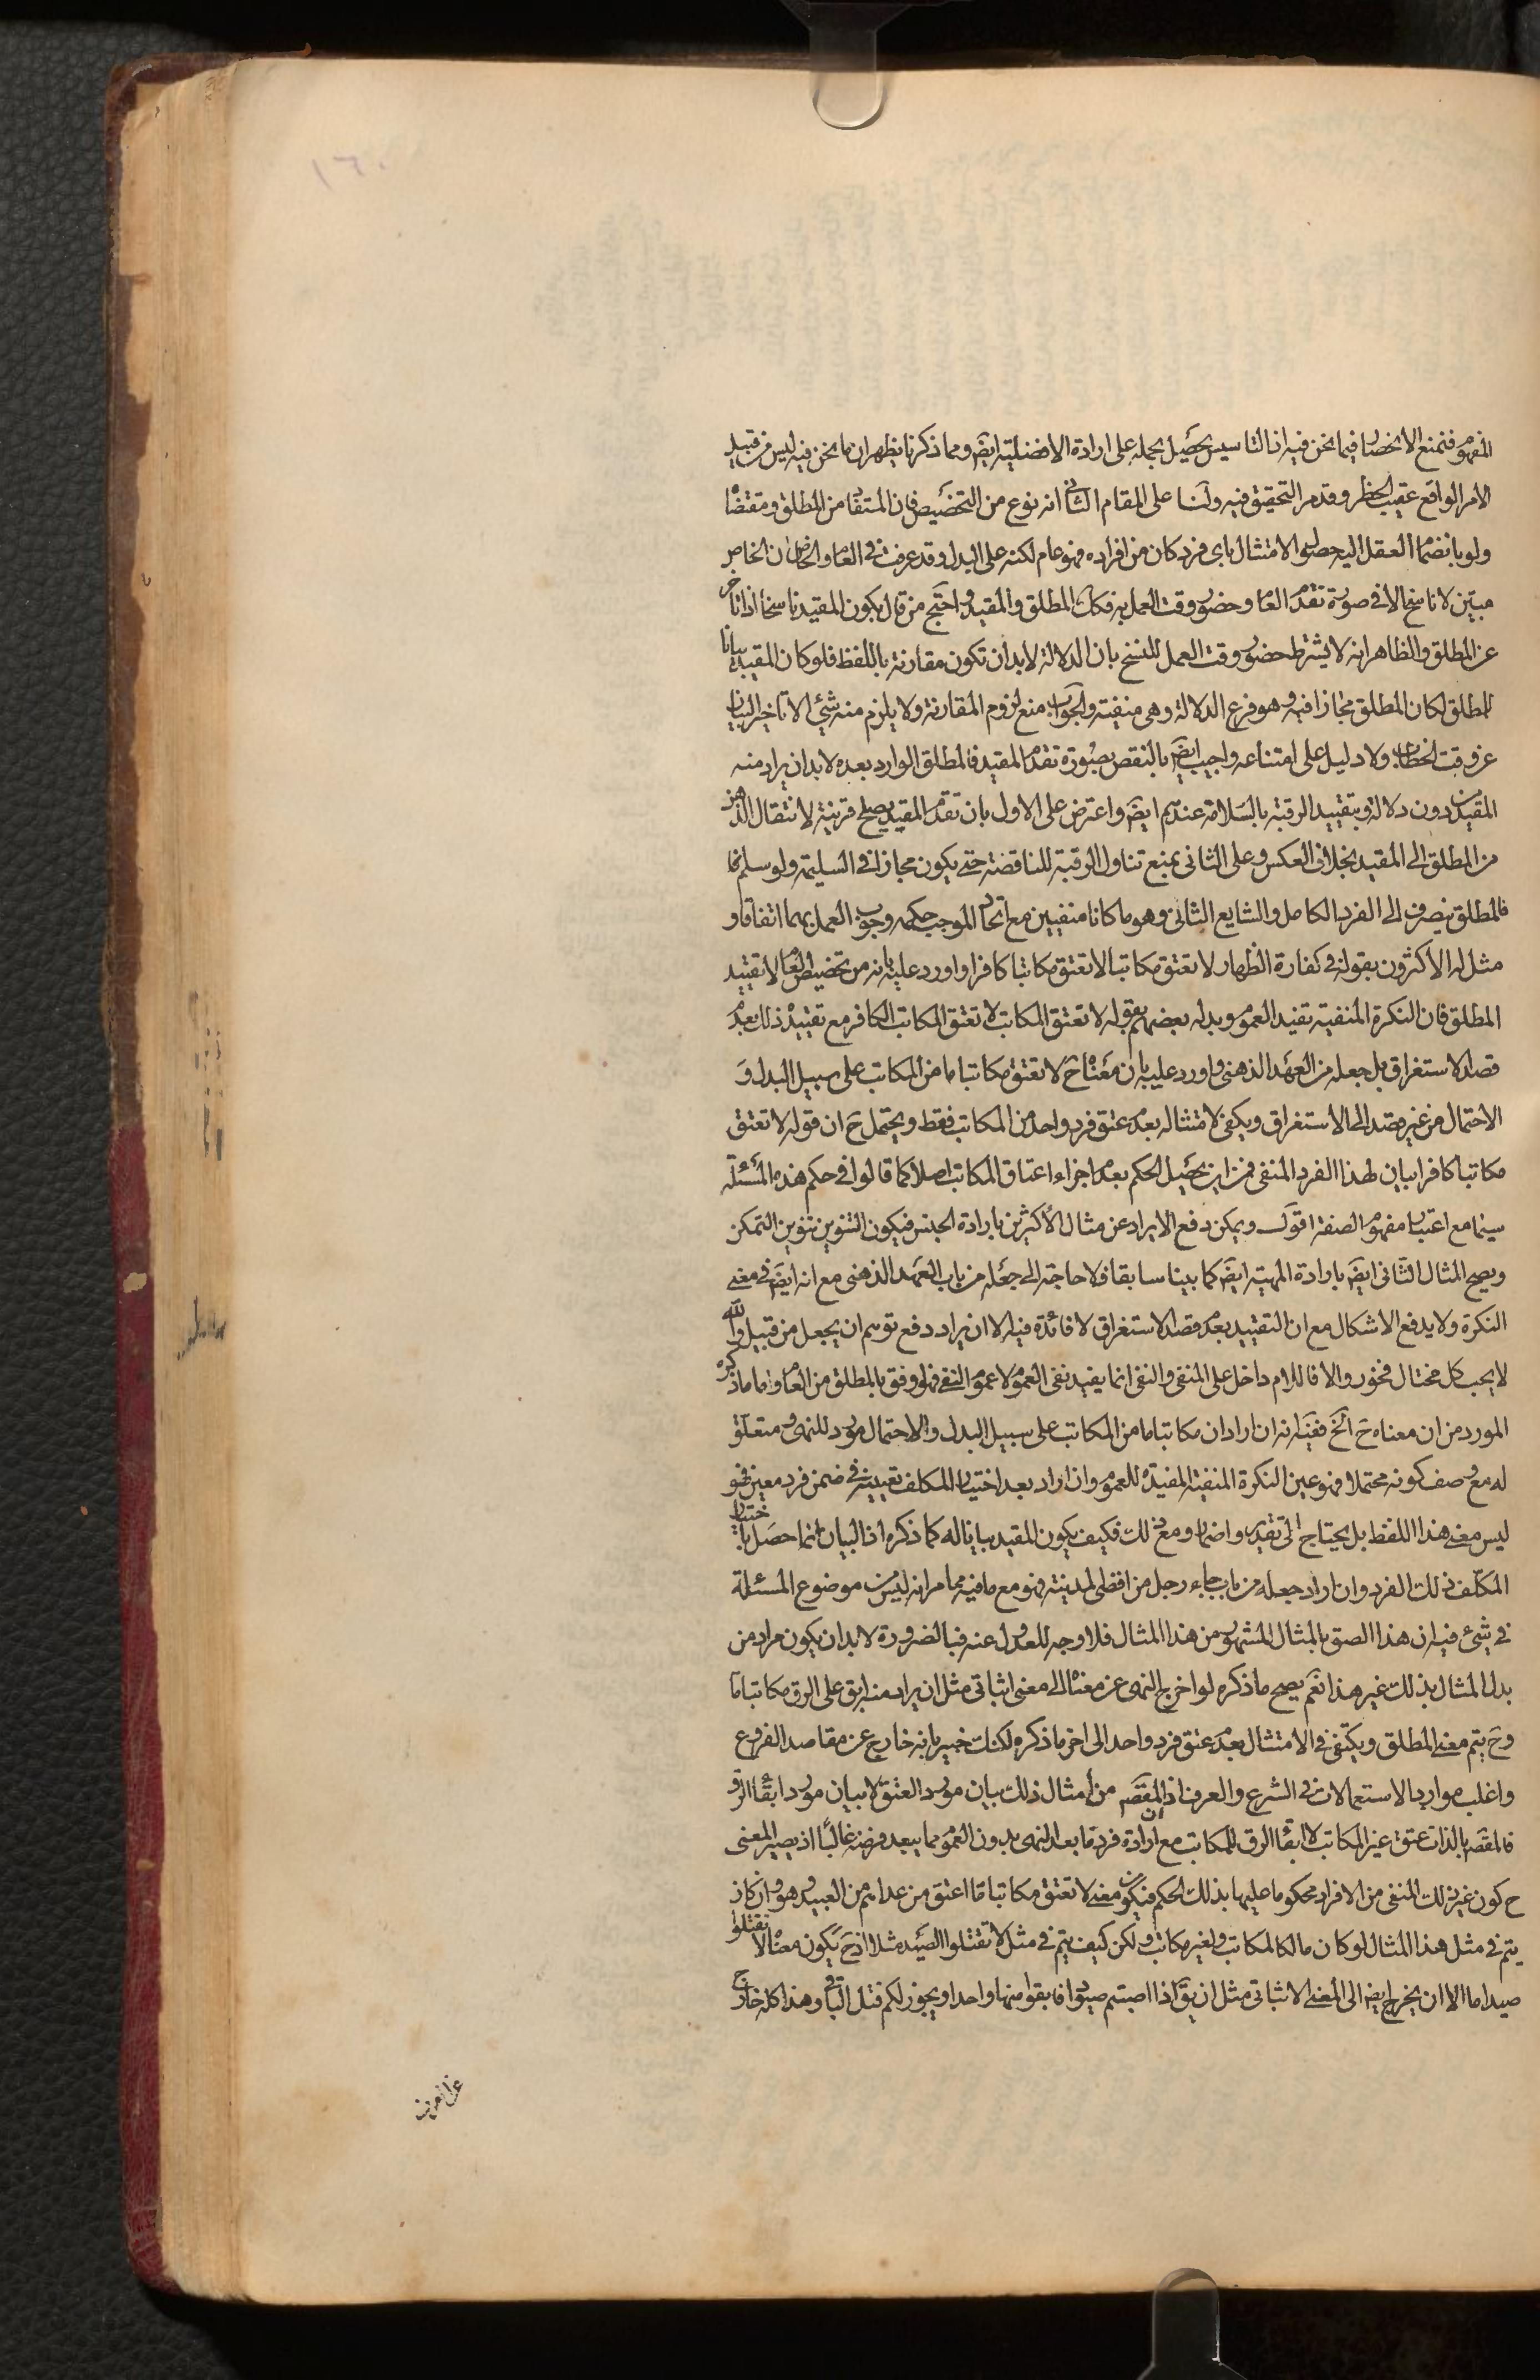 ١٦٠
المفهوم فتمنع الانحصار فيما نحن فيه اذ التاسيس يحصل بحمله على ارادة الافضلية ايضَ ومما ذكرنا يظهر ان ما نحن فيه ليس من قبيل
الامر الواقع عقيب الحظر وقد مر التحقيق فيه ولنا على المقام الثانى انه نوع من التخصيص فان المستفاد من المطلق ومقتضاه
ولو بانضمام العقل اليه حصول الامتثال باى فرد كان من افراده فهو عام لكنه على البدل وقد عرفت فى العام والخاص ان الخاص
مبين لا ناسخ الا فى صورة تقدم العام وحضور وقت العمل به فكك المطلق والمقيد واحتج من قال بكون المقيد ناسخا اذا تاخر
عن المطلق والظاهر انه لا يشترط حضور وقت العمل للنسخ بان الدلالة لابد ان تكون مقارنة باللفظ فلو كان المقيد بيانا
للمطلق لكان المطلق مجازا فيه وهو فرع الدلالة وهى منفية والجواب منع لزوم المقارنة ولا يلزم منه شئ الا تاخير البيان
عن وقت الخطاب ولا دليل على امتناعه واجيب ايضَ بالنقض بصورة تقدم المقيد فالمطلق الوارد بعده لابد ان يراد منه
المقيد من دون دلالة وبتقييد الرقبة بالسلامة عندهم ايضَ واعترض على الاول بان تقدم المقيد يصلح قرينة لانتقال الذهن
من المطلق الى المقيد بخلاف العكس وعلى الثانى بمنع تناول الرقبة للناقصة حتى يكون مجازا فى السليمة ولو سلم فا
فالمطلق ينصرف الى الفرد الكامل والشايع الثانى وهو ما كانا منفيين مع اتحاد الموجب حكمه وجوب العمل بهما اتفاقا و
مثل له الاكثرون بقوله فى كفارة الظهار لا تعتق مكاتبا لا تعتق مكاتبا كافرا واورد عليه بانه من تخصيص العام لا تقييد
المطلق فان النكرة المنفية تفيد العموم وبدله بعضهم بقوله لا تعتق المكاتب لا تعتق المكاتب الكافر مع تقييد ذلك بعدم
قصد الاستغراق بل جعله من العهد الذهنى واورد عليه بان معناه حَ لا تعتق مكاتبا ما من المكاتب على سبيل البدل وَ
الاحتمال من غير قصد الى الاستغراق ويكفى لامتثاله بعدم عتق فرد واحد من المكاتب فقط ويحتمل حَ ان قوله لا تعتق
مكاتبا كافرا بيان لهذا الفرد المنفى فمن اين يحصل الحكم بعدم اجزاء اعتاق المكاتب اصلا كما قالوا فى حكم هذه المسئلة
سيما مع اعتبار مفهوم الصفة اقول ويمكن دفع الايراد عن مثال الاكثرين بارادة الجنس فيكون التنوين تنوين التمكن
ويصح المثال الثانى ايضَ بارادة المهية ايضَ كما بينا سابقا فلا حاجة الى جعله من باب العهد الذهنى مع انه ايضَ فى معنى
النكرة ولا يدفع الاشكال مع ان التقييد بعدم قصد الاستغراق لا فائدة فيه الا ان يراد دفع توهم ان يجعل من قبيل والله
لا يحب كل مختال فخور والا فاللام داخل على المنفى والنفى انما يفيد نفى العموم لا عموم النفى فهو اوفق بالمطلق من العام واما ما ذكره
المورد من ان معناه حَ الخ ففيه انه ان اراد ان مكاتبا ما من المكاتب على سبيل البدل والاحتمال مورد للنهى ومتعلق
له مع وصف كونه محتملا فهو عين النكرة المنفية المفيدة للعموم وان اراد بعد اختيار المكلف تعيينه فى ضمن فرد معين فهو
ليس معنى هذا اللفظ بل يحتاج الى تقدير واضمار ومع ذلك فكيف يكون المقيد بيانا له كما ذكره اذ البيان انما حصل باختيار
المكلف ذلك الفرد وان اراد جعله من باب جاء رجل من اقصى المدينة فهو مع ما فيه مما مر انه ليس من موضوع المسئلة
فى شئ فيه ان هذا الصق بالمثال المشهور من هذا المثال فلا وجه للعدول عنه فبالضرورة لابد ان يكون مراد من
بدل المثال بذلك غير هذا نعم يصح ما ذكره لو اخرج النهى عن معناه الى معنى اثباتى مثل ان يراد منه ابق على الرق مكاتبا ما
وحَ يتم معنى المطلق ويكتفى فى الامتثال بعدم عتق فرد واحد الى اخر ما ذكره لكنك خبير بانه خارج عن مقاصد الفروع
واغلب موارد الاستعمالات فى الشرع والعرف اذ المقصَ من امثال ذلك بيان مورد العتق لا بيان مورد ابقاء الرق
فالمقصَ بالذات عتق غير المكاتب لا ابقاء الرق للمكاتب مع ان ارادة فرد ما بعد النهى بدون العموم مما يبعد فرضه غالبا اذ يصير المعنى
ح كون غير ذلك المنفى من الافراد محكوما عليها بذلك الحكم فيكون معنى لا تعتق مكاتبا ما اعتق من عداهم من العبيد وهو وان كان
يتم فى مثل هذا المثال لو كان مالكا لمكاتب ولغير مكاتب ولكن كيف يتم فى مثل لا تقتلوا الصيد مثلا اذ حَ يكون معناه لا تقتلوا
صيدا ما الا ان يخرج ايضَ الى المعنى الاثباتى مثل ان يقَ اذا اصبتم صيودا فابقوا منها واحدا ويجوز لكم قتل الباقى وهذا كله خارج